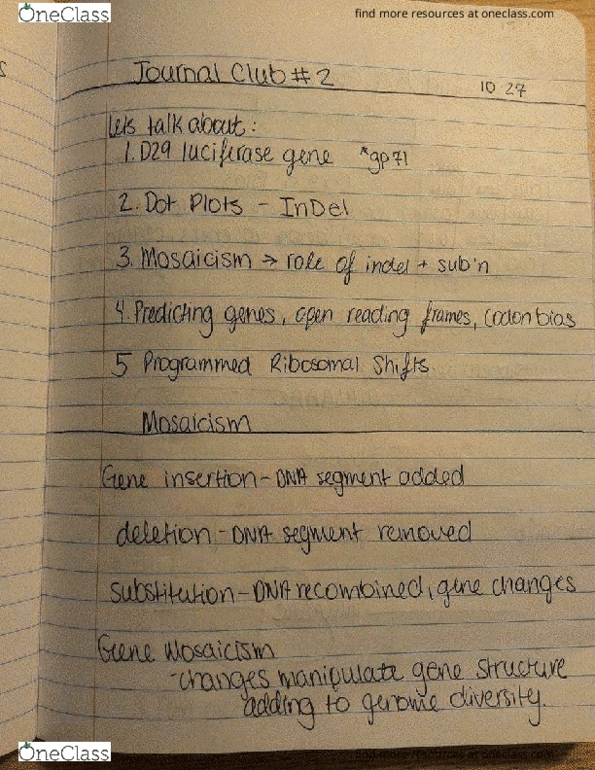 OneClass
find more resources at oneclass.com
Journal Club #2
10 27
Lets talk about:
1. D29 luciferase gene *gp71
2. Dot Plots - InDel
3. Mosaicism → role of indel + sub'n
4. Predicting genes, open reading frames, codon bias
5 Programmed Ribosomal Shifts
Mosaicism
Gene insertion - DNA segment added
deletion - DNA segment removed
substitution - DNA recombined, gene changes
Gene Mosaicism
- changes manipulate gene structure
adding to genome diversity.
OneClass
find more resources at oneclass.com